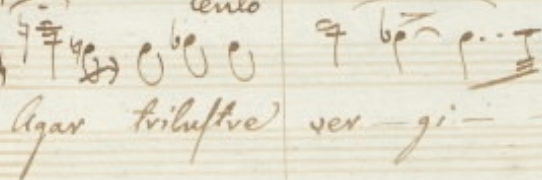 lento
Agar triluſtre ver - gi -